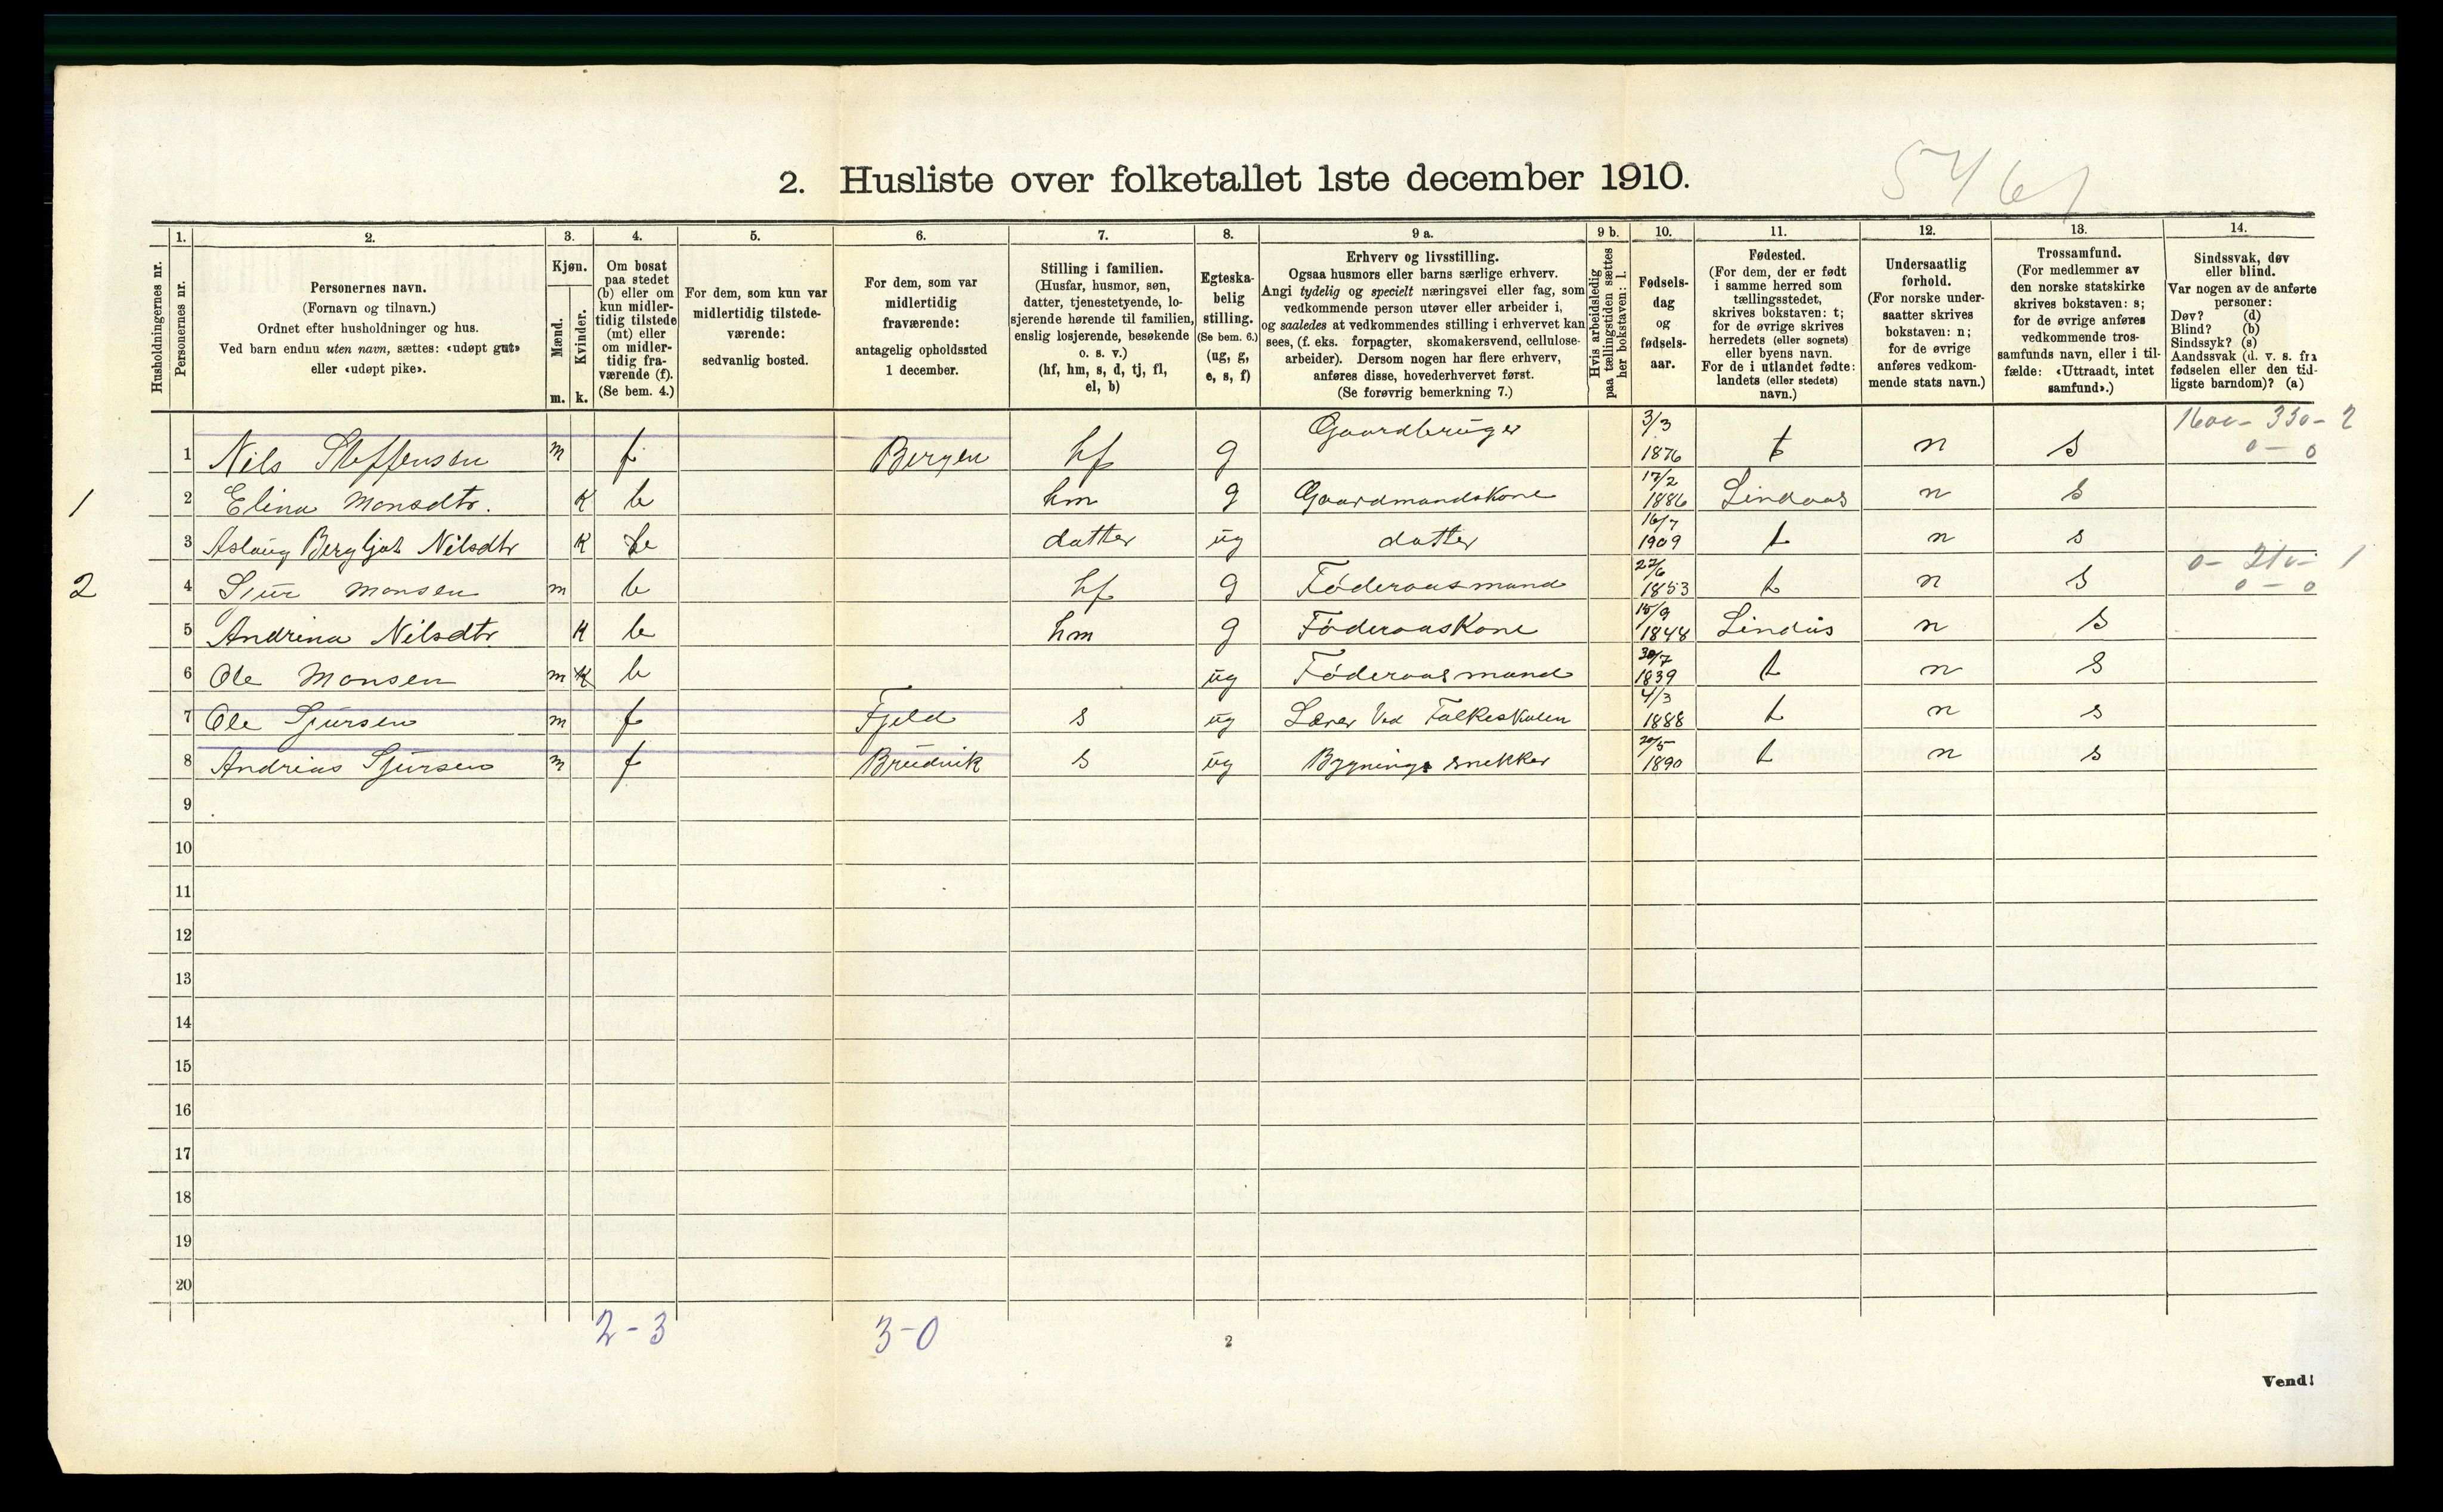 5461
2. Husliste over folketallet 1ste december 1910.
Husholdningernes nr.
1. Personernes nr.
2. Personernes navn. (Fornavn og tilnavn.) Ordnet efter husholdninger og hus. Ved barn endnu uten navn, sættes: «udøpt gut» eller «udøpt pike».
3. Kjøn. Mænd. m. Kvinder. k.
4. Om bosat paa stedet (b) eller om kun midlertidig tilstede (mt) eller om midlertidig fraværende (f). (Se bem. 4.)
5. For dem, som kun var midlertidig tilstedeværende: sedvanlig bosted.
6. For dem, som var midlertidig fraværende: antagelig opholdssted 1 december.
7. Stilling i familien. (Husfar, husmor, søn, datter, tjenestetyende, losjerende hørende til familien, enslig losjerende, besøkende o. s. v.) (hf, hm, s, d, tj, fl, el, b)
8. Egteskabelig stilling. (Se bem. 6.) (ug, g, e, s, f)
9 a. Erhverv og livsstilling. Ogsaa husmors eller barns særlige erhverv. Angi tydelig og specielt næringsvei eller fag, som vedkommende person utøver eller arbeider i, og saaledes at vedkommendes stilling i erhvervet kan sees, (f. eks. forpagter, skomakersvend, cellulosearbeider). Dersom nogen har flere erhverv, anføres disse, hovederhvervet først. (Se forøvrig bemerkning 7.)
9 b. Hvis arbeidsledig paa tællingstiden sættes her bokstaven: l.
10. Fødselsdag og fødselsaar.
11. Fødested. (For dem, der er født i samme herred som tællingsstedet, skrives bokstaven: t; for de øvrige skrives herredets (eller sognets) eller byens navn. For de i utlandet fødte: landets (eller stedets) navn.)
12. Undersaatlig forhold. (For norske undersaatter skrives bokstaven: n; for de øvrige anføres vedkommende stats navn.)
13. Trossamfund. (For medlemmer av den norske statskirke skrives bokstaven: s; for de øvrige anføres vedkommende trossamfunds navn, eller i tilfælde: «Uttraadt, intet samfund».)
14. Sindssvak, døv eller blind. Var nogen av de anførte personer: Døv? (d) Blind? (b) Sindssyk? (s) Aandssvak (d. v. s. fra fødselen eller den tidligste barndom)? (a)
1 Nils Steffensen m f Bergen hf g Gaardbruger 3/3 1876 t n s 1600 - 330 - 2 0 - 0
1 2 Elina Monsdtr. K b hm g Gaardmandskone 17/2 1886 Lindaas n s
3 Aslaug Bergljot Nilsdtr K b datter ug datter 16/7 1909 t n s
2 4 Sjur Monsen m b hf g Føderaasmand 27/6 1853 t n s 0 - 210 - 1 0 - 0
5 Andrina Nilsdtr. K b hm g Føderaaskone 15/9 1848 Lindås n s
6 Ole Monsen m K b ug Føderaasmand 30/7 1839 t n s
7 Ole Sjursen m f Fjeld s ug Lærer Ved Folkeskolen 4/3 1888 t n s
8 Andrias Sjursen m f Brudvik s ug Bygnings snekker 20/5 1890 t n s
9
10
11
12
13
14
15
16
17
18
19
20
2-3 3-0
2
Vend!